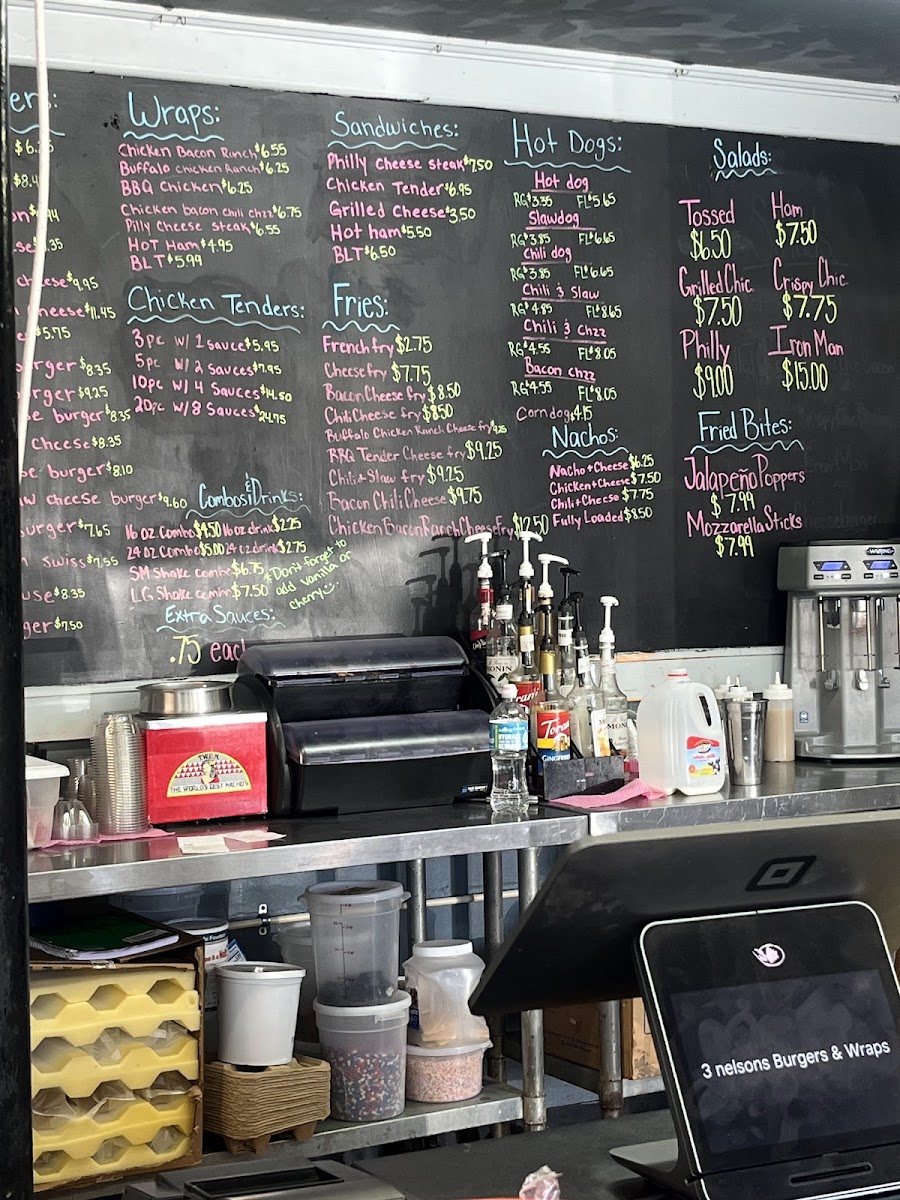 ers:
$8.4
$8.35
cheese $9.95
cheese $11.45
$5.75
urger $8.35
rger $9.25
burger $8.35
cheese $8.35
burger $8.10
cheese burger $9.60
urger $7.65
Swiss $7.55
use $8.35
ger $7.50
Wraps:
Chicken Bacon Rinch $6.55
Buffalo chicken Ranch $6.25
BBQ Chicken $6.25
Chicken bacon chili chzz $6.75
Pilly Cheese steak $6.55
HOT Ham $4.95
BLT $5.99
Chicken Tenders:
3pc w/ 1 sauce $5.95
5pc w/ 2 sauces $7.95
10pc w/ 4 Sauces $14.50
20pc w/ 8 Sauces $24.75
Combos & Drinks:
16 oz Combo $4.50 16 oz drink $2.25
24 oz Combo $5.00 24 oz drink $2.75
SM Shake combo $6.75
LG Shake combo $7.50
*Don't forget to
add vanilla or
cherry
Extra Sauces:
.75 each
Sandwiches:
Philly Cheese Steak $7.50
Chicken Tender $6.95
Grilled Cheese $3.50
Hot ham $5.50
BLT $6.50
Fries:
French fry $2.75
Cheese fry $7.75
Bacon Cheese fry $8.50
Chili Cheese fry $8.50
Buffalo Chicken Ranch Cheese fry 9.25
BBQ Tender Cheese fry $9.25
Chili & Slaw fry $9.25
Bacon Chili Cheese $9.75
Chicken Bacon Ranch Cheese fry $12.50
Hot Dogs:
Hot dog
RG $3.35 FL $5.65
Slawdog
RG $3.85 FL $6.65
Chili dog
RG $3.85 FL $6.65
Chili & Slaw
RG $4.85 FL $8.65
Chili & Chzz
RG $4.55 FL $8.05
Bacon chzz
RG $4.55 FL $8.05
Corndog $4.15
Nachos:
Nacho + Cheese $6.25
Chicken + Cheese $7.50
Chili + Cheese $7.75
Fully Loaded $8.50
Salads:
Tossed
$6.50
Ham
$7.50
Grilled Chic.
$7.50
Crispy Chic.
$7.75
Philly
$9.00
Iron Man
$15.00
Fried Bites:
Jalapeño Poppers
$7.99
Mozzarella Sticks
$7.99
WARING
THE WORLD'S BEST NACHOS
Torani
3 nelsons Burgers & Wraps